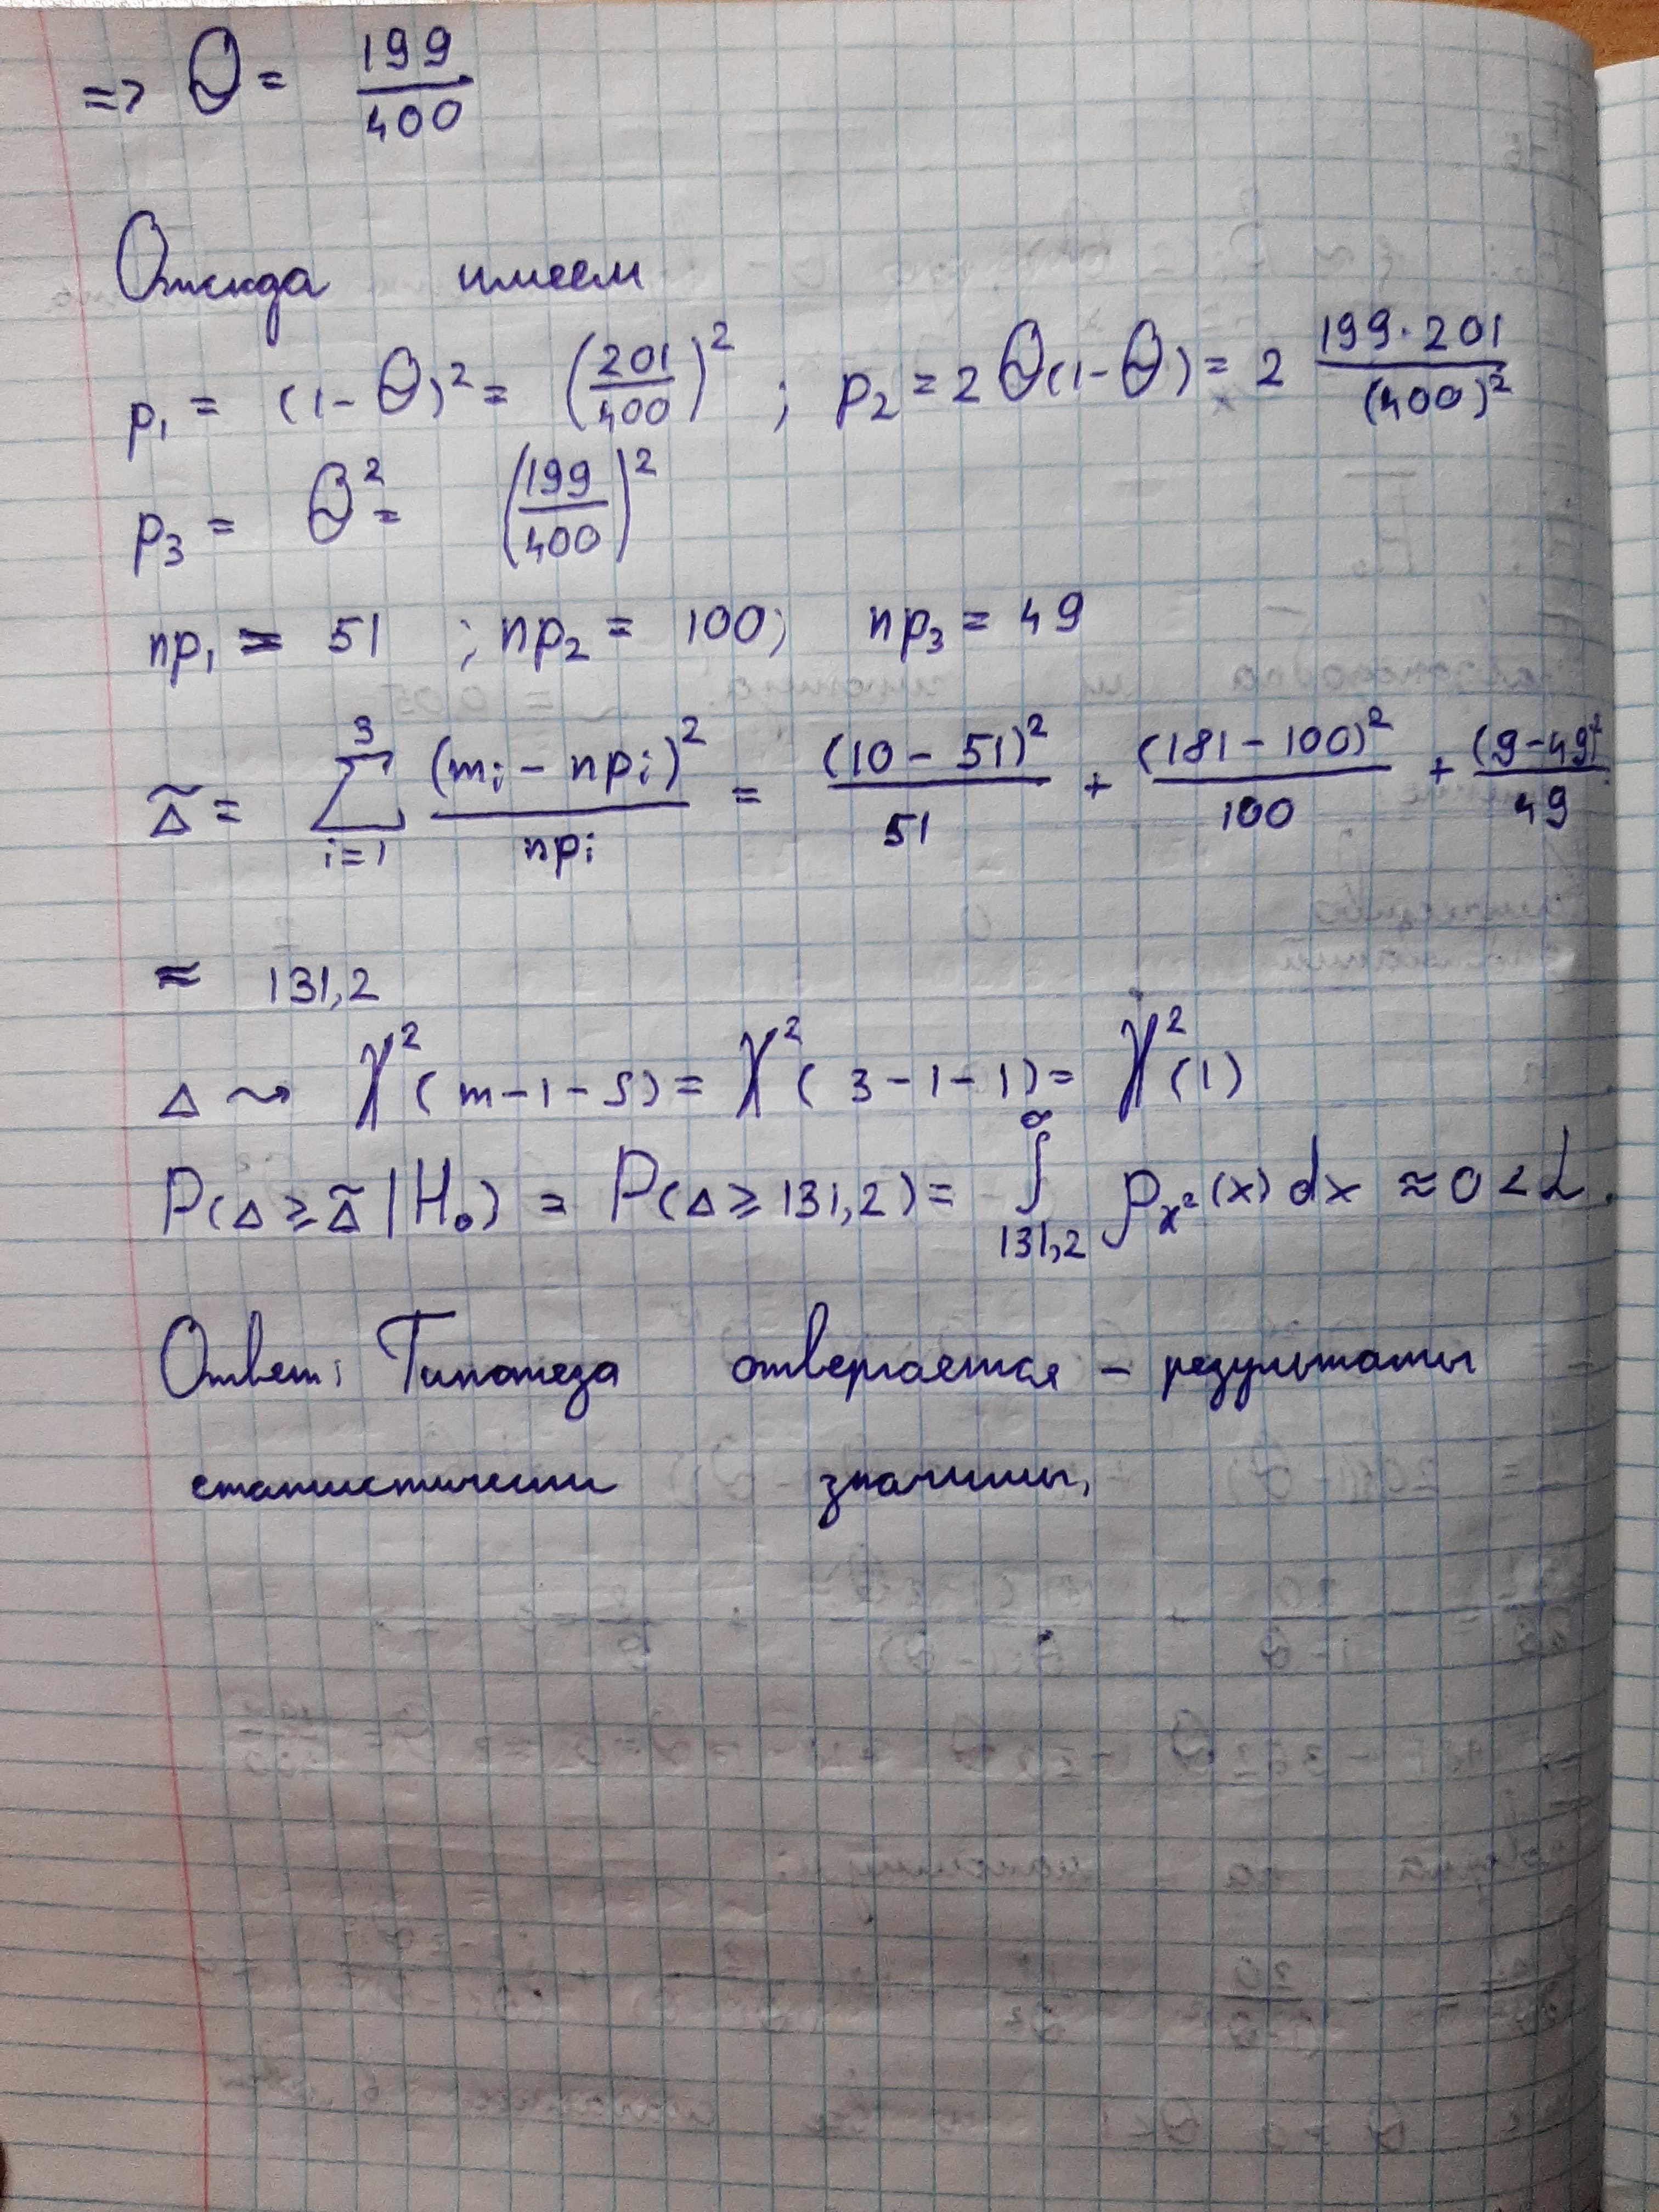 => θ = 199/400
Отсюда имеем
p₁ = (1-θ)² = (201/400)² ; p₂ = 2θ(1-θ) = 2 199·201/(400)²
p₃ = θ² = (199/400)²
np₁ = 51 ; np₂ = 100; np₃ = 49
Δ̃ = Σ_{i=1}^{3} (mᵢ - npᵢ)²/npᵢ = (10 - 51)²/51 + (181 - 100)²/100 + (9-49)²/49
≈ 131,2
Δ ⇝ χ²(m-1-s) = χ²(3-1-1) = χ²(1)
P(Δ ≥ Δ̃ | H₀) = P(Δ ≥ 131,2) = ∫_{131,2}^{∞} p_{χ²}(x) dx ≈ 0 < α.
Ответ: Гипотеза отвергается - результаты
статистически значимы.